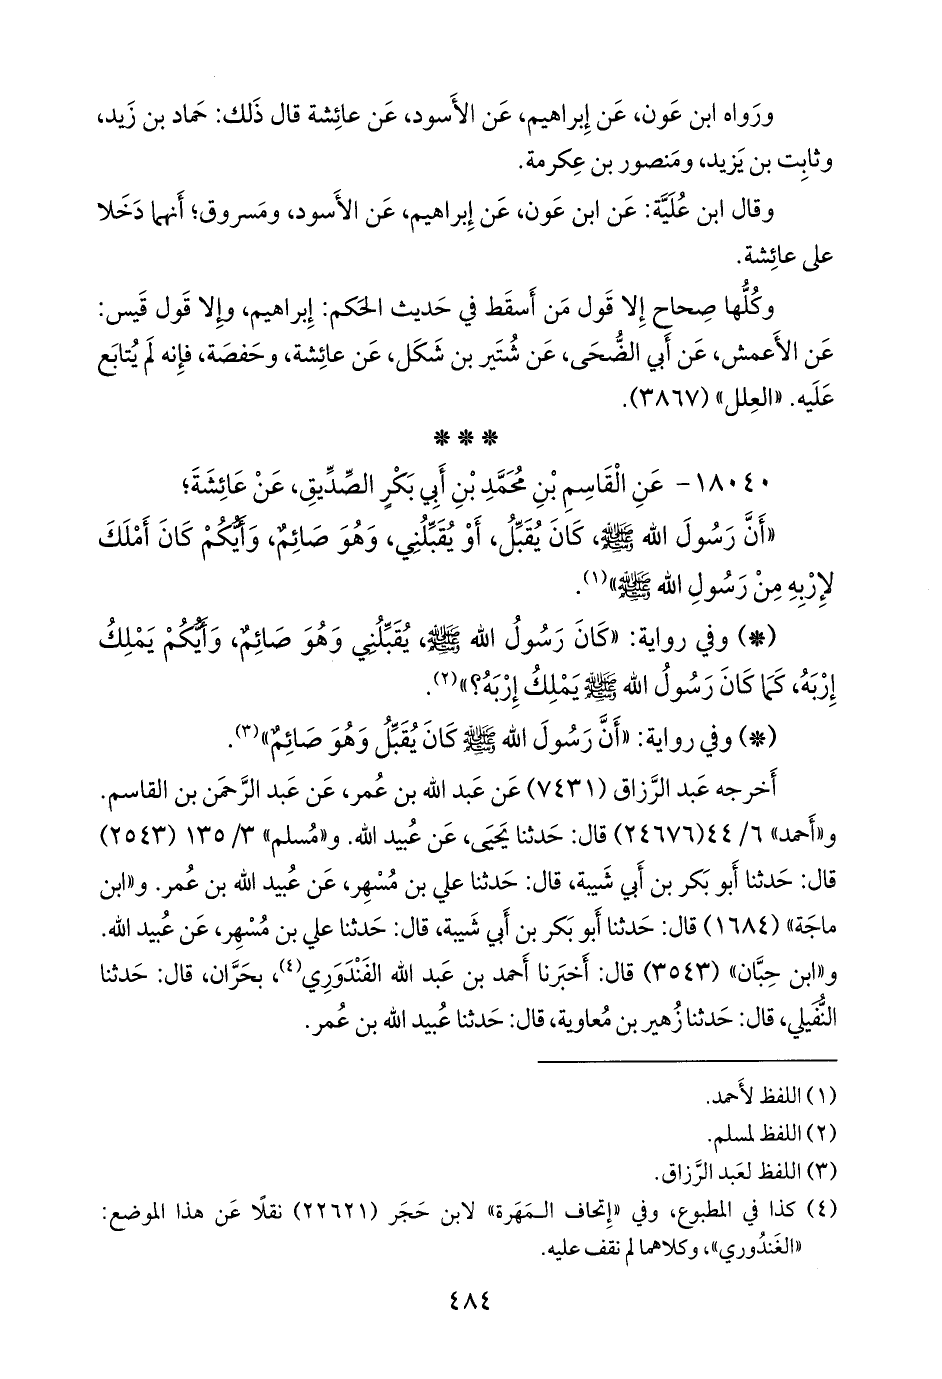 ورَواه ابن عَون، عَن إِبراهيم، عَن الأَسود، عَن عائِشة قال ذَلك: حَماد بن زَيد،
وثابِت بن يَزيد، ومَنصور بن عِكرمة.
وقال ابن عُلَيَّة: عَن ابن عَون، عَن إِبراهيم، عَن الأَسود، ومَسروق؛ أَنهما دَخَلا
على عائِشة.
وكُلُّها صِحاح إِلا قَول مَن أَسقَط في حَديث الحَكم: إِبراهيم، وإِلا قَول قَيس:
عَن الأَعمش، عَن أَبي الضُّحَى، عَن شُتَير بن شَكَل، عَن عائِشة، وحَفصَة، فإِنه لَم يُتابَع
عَلَيه. «العِلل» (٣٨٦٧).
* * *
١٨٠٤٠- عَنِ الْقَاسِمِ بْنِ مُحَمَّدِ بْنِ أَبِي بَكْرٍ الصِّدِّيقِ، عَنْ عَائِشَةَ؛
«أَنَّ رَسُولَ الله ﷺ، كَانَ يُقَبِّلُ، أَوْ يُقَبِّلُنِي، وَهُوَ صَائِمٌ، وَأَيُّكُمْ كَانَ أَمْلَكَ
لإِرْبِهِ مِنْ رَسُولِ الله ﷺ»(١).
(*) وفي رواية: «كَانَ رَسُولُ الله ﷺ، يُقَبِّلُنِي وَهُوَ صَائِمٌ، وَأَيُّكُمْ يَمْلِكُ
إِرْبَهُ، كَمَا كَانَ رَسُولُ الله ﷺ يَمْلِكُ إِرْبَهُ؟»(٢).
(*) وفي رواية: «أَنَّ رَسُولَ الله ﷺ كَانَ يُقَبِّلُ وَهُوَ صَائِمٌ»(٣).
أَخرجه عَبد الرَّزاق (٧٤٣١) عَن عَبد الله بن عُمر، عَن عَبد الرَّحمَن بن القاسم.
و«أَحمد» ٦/ ٤٤(٢٤٦٧٦) قال: حَدثنا يَحيَى، عَن عُبيد الله. و«مُسلم» ٣/ ١٣٥ (٢٥٤٣)
قال: حَدثنا أَبو بَكر بن أَبي شَيبة، قال: حَدثنا علي بن مُسْهِر، عَن عُبيد الله بن عُمر. و«ابن
ماجَة» (١٦٨٤) قال: حَدثنا أَبو بَكر بن أَبي شَيبة، قال: حَدثنا علي بن مُسْهِر، عَن عُبيد الله.
و«ابن حِبَّان» (٣٥٤٣) قال: أَخبَرنا أَحمد بن عَبد الله الفَنْدَوَرِي(٤)، بحَرَّان، قال: حَدثنا
النُّفَيلي، قال: حَدثنا زُهير بن مُعاوية، قال: حَدثنا عُبيد الله بن عُمر.
(١) اللفظ لأَحمد.
(٢) اللفظ لمسلم.
(٣) اللفظ لعَبد الرَّزاق.
(٤) كذا في المطبوع، وفي «إِتحاف الـمَهَرة» لابن حَجَر (٢٢٦٢١) نقلًا عَن هذا الموضع:
«الغَندُوري»، وكلاهما لم نقف عليه.
٤٨٤